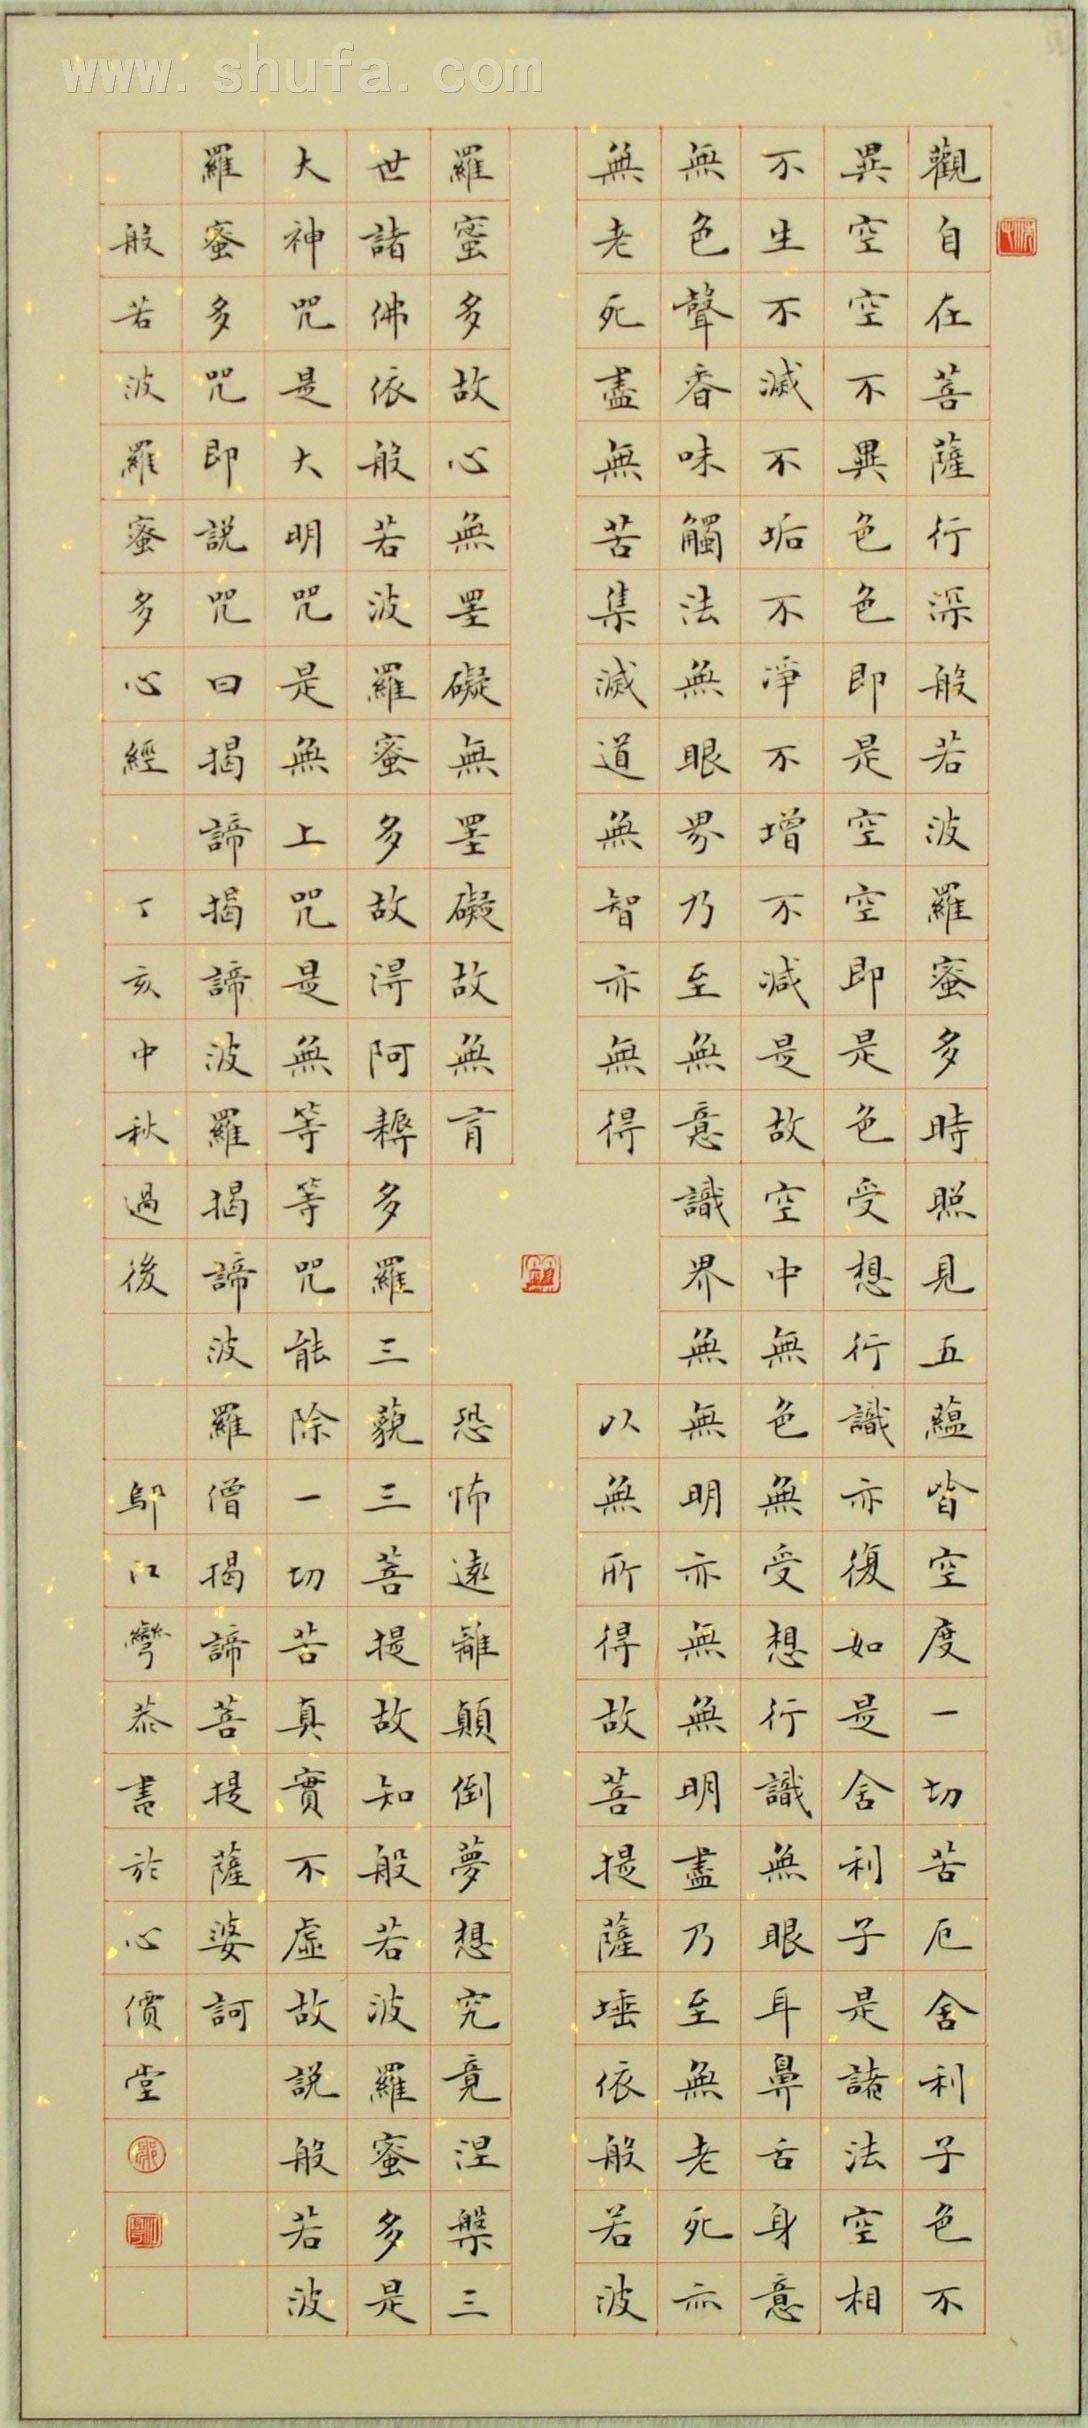 www.shufa.com
觀自在菩薩行深般若波羅蜜多時照見五蘊皆空度一切苦厄舍利子色不
異空空不異色色即是空空即是色受想行識亦復如是舍利子是諸法空相
不生不滅不垢不淨不增不減是故空中無色無受想行識無眼耳鼻舌身意
無色聲香味觸法無眼界乃至無意識界無無明亦無無明盡乃至無老死亦
無老死盡無苦集滅道無智亦無得以無所得故菩提薩埵依般若波
羅蜜多故心無罣礙無罣礙故無有恐怖遠離顛倒夢想究竟涅槃三
世諸佛依般若波羅蜜多故得阿耨多羅三藐三菩提故知般若波羅蜜多是
大神咒是大明咒是無上咒是無等等咒能除一切苦真實不虛故說般若波
羅蜜多咒即說咒曰揭諦揭諦波羅揭諦波羅僧揭諦菩提薩婆訶
般若波羅蜜多心經 丁亥中秋過後 鄔江彎恭書於心價堂